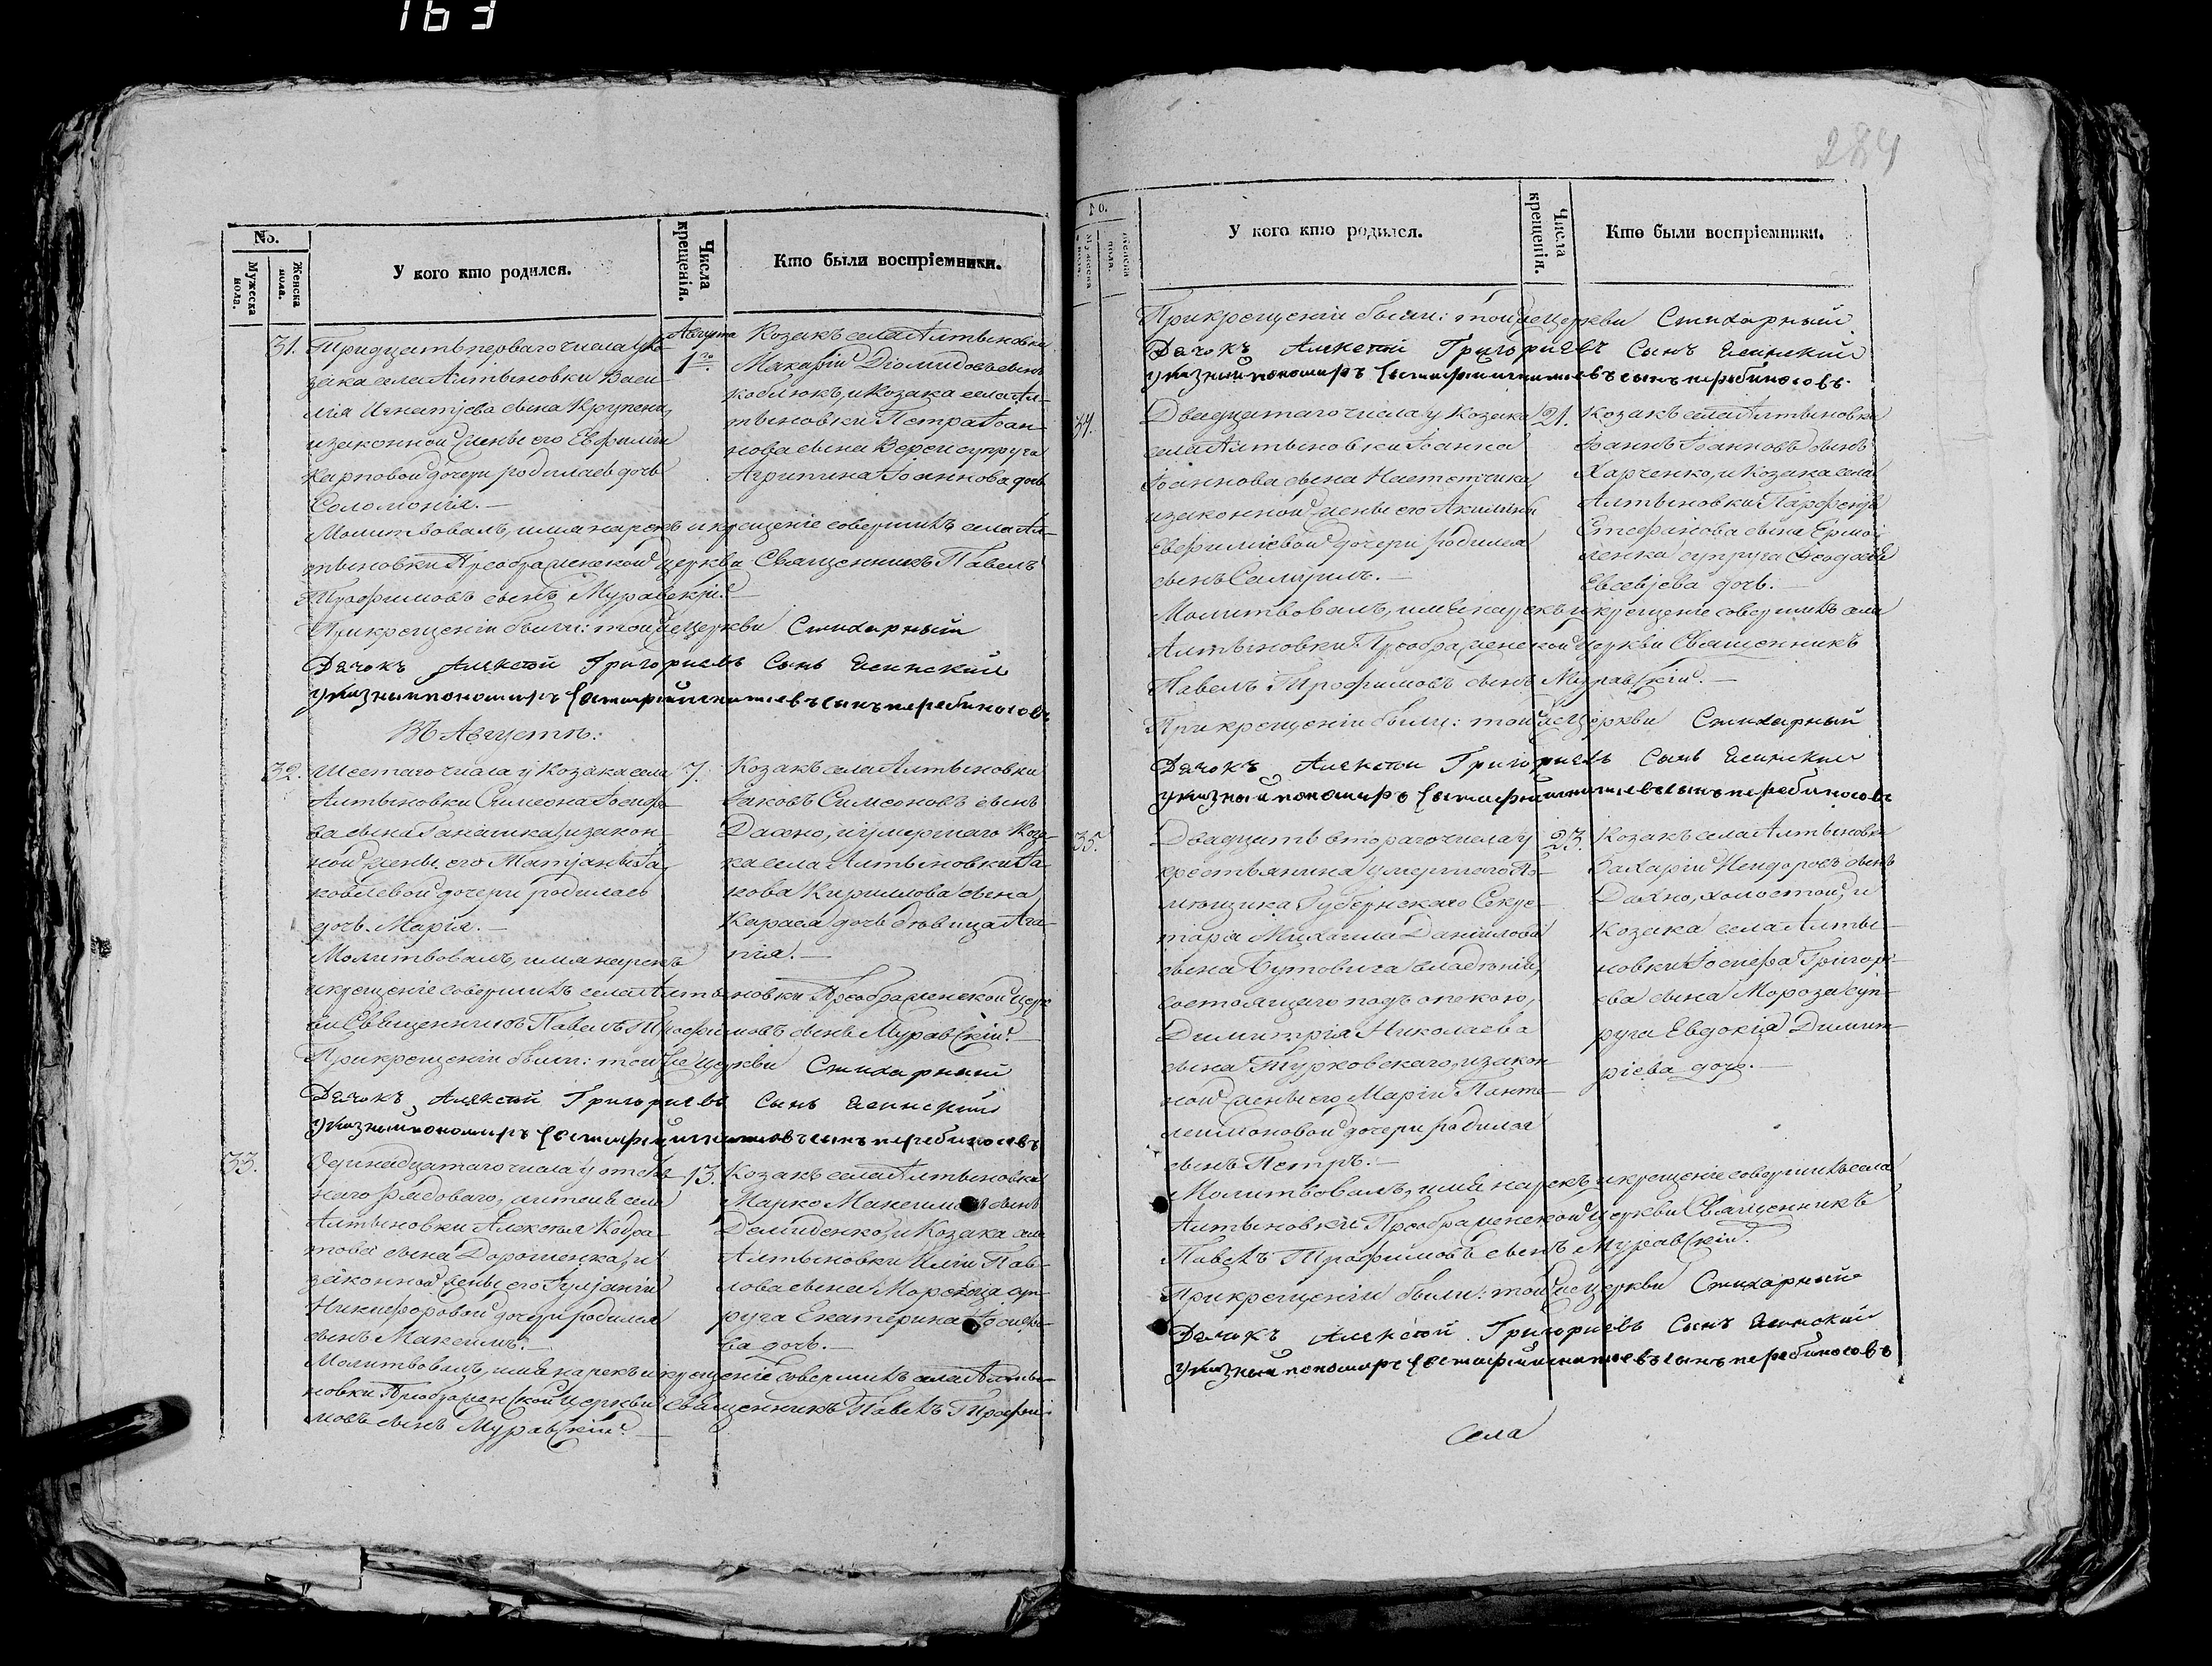 163
No.
Мужеска пола.
Женска пола.
У кого кто родился.
Числа крещенія.
Кто были воспріемники.
31.
Тридцать перваго числа у ко-
зака села Алтыновки Васи-
лія Игнатіева сына Крупени,
и законной жены его Евфиміи
Карповой дочери родилась дочь
Соломонія.
Августа
1го.
Козакъ села Алтыновки
Макарій Діомидовъ сынъ
Коблюкъ, и Козака села Ал-
тыновки Петра Іоан-
нова сына супруга
Агрипина Іоаннова дочь
Молитвовалъ, имя нарекъ и крещеніе совершилъ села Ал-
тыновки Преображенской церкви Священникъ Павелъ
Трофимовъ сынъ Муравскій.
При крещеніи были: той же Церкви Стихарный
Дячокъ Алексій Григориевъ Сынъ
Указный пономарь сынъ
Въ Августѣ:
32.
Шестаго числа у Козака села
Алтыновки Симеона Іосифо-
ва сына и закон-
ной жены его Татіаны Іа-
ковлевой дочери родилась
дочь Марія.
7.
Козакъ села Алтыновки
Іаковъ Симеоновъ сынъ
Дахно, и умершаго Коза-
ка села Алтыновки Іа-
кова Кириллова сына
Карася дочь дѣвица Ага-
пія.
Молитвовалъ, имя нарекъ
и крещеніе совершилъ села Алтыновки Преображенской Церк-
ви Священникъ Павелъ Трофимовъ сынъ Муравскій.
При крещеніи были: той же Церкви Стихарный
Дячокъ Алексій Григориевъ Сынъ
Указный пономарь сынъ
33.
Одинадцатаго числа у
рядоваго, жителя села
Алтыновки Алексія Кодра-
това сына Дорошенка, и
законной жены его Іуліаніи
Никифоровой дочери родился
сынъ Максимъ.
13.
Козакъ села Алтыновки
Марко Максимовъ сынъ
Демиденко, и Козака села
Алтыновки Иліи Пав-
лова сына суп-
руга Екатерина Іосифо-
ва дочь.
Молитвовалъ, имя нарекъ и крещеніе совершилъ села Алты-
новки Преображенской Церкви Священникъ Павелъ Трофи-
мовъ сынъ Муравскій.
284
No.
Мужеска пола.
Женска пола.
У кого кто родился.
Числа крещенія.
Кто были воспріемники.
При крещеніи были: той же Церкви Стихарный
Дячокъ Алексій Григориевъ Сынъ
Указный пономарь сынъ
34.
Двадцатаго числа у Козака
села Алтыновки Іоанна
Іоаннова сына
и законной жены его Акилины
Евфиміевой дочери родился
сынъ Самуилъ.
21.
Козакъ села Алтыновки
Іоаннъ Іоанновъ сынъ
Харченко, и Козака села
Алтыновки Парфенія
Стефанова сына Ермо-
ленка супруга Ѳеодосія
Евсевіева дочь.
Молитвовалъ, имя нарекъ и крещеніе совершилъ села
Алтыновки Преображенской Церкви Священникъ
Павелъ Трофимовъ сынъ Муравскій.
При крещеніи были: той же Церкви Стихарный
Дячокъ Алексій Григориевъ Сынъ
Указный пономарь сынъ
35.
Двадцать втораго числа у
крестьянина умершаго По-
мѣщика Губернскаго Секре-
таря Михаила Даніилова
сына Бутовича владѣнія,
состоящаго подъ опекою,
Димитрія Николаева
сына Турковскаго, и закон-
ной жены его Маріи Панте-
леимоновой дочери родился
сынъ Петръ.
23.
Козакъ села Алтыновки
Захарій сынъ
Дахно, холостой, и
Козака села Алты-
новки Іосифа Григорі-
ева сына Мороза суп-
руга Евдокія Димит-
ріева дочь.
Молитвовалъ, имя нарекъ, и крещеніе совершилъ села
Алтыновки Преображенской Церкви Священникъ
Павелъ Трофимовъ сынъ Муравскій.
При крещеніи были: той же Церкви Стихарный
Дячокъ Алексій Григориевъ Сынъ
Указный пономарь сынъ
Села